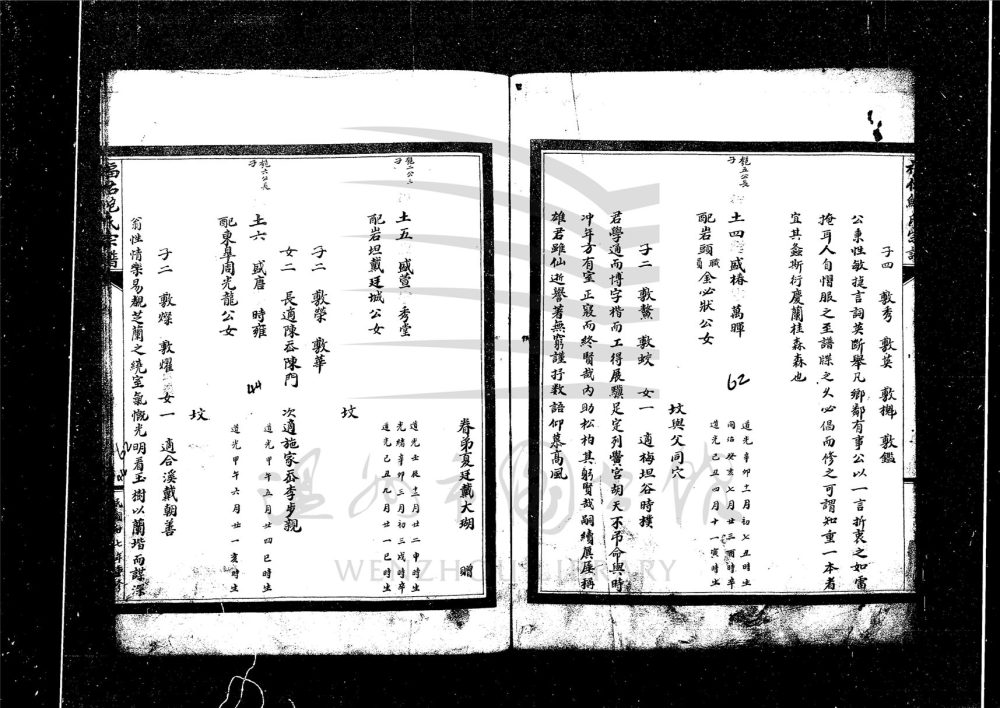 子四 敷秀 敷英 敷㭿 敷鑑
公秉性敏捷言詞英斷舉凡鄉鄰有事公以一言折衷之如雷
掩耳人自慴服之至譜牒之久必倡而修之可謂知重一本者
宜其螽斯衍慶蘭桂森森也
龍五公長子
土四 盛椿 萬暉
道光辛卯十一月初七丑時生
同治癸亥七月廿三酉時卒
配岩頭職員金必狀公女
道光己丑四月十一寅時生
62
坟與父同穴
子二 敷鰲 敷蛟 女一 適梅坦谷時樸
君學通而博字楷而工得展驥足定列黌宮胡天不弔命與時
冲年方有室正寢而終賢哉內助松柏其躬賢哉嗣續展展稱
雄君雖仙逝譽著無窮謹抒数語仰慕高風
眷弟夏廷戴大瑚 贈
龍二公三子
土五 盛萱 秀堂
道光壬辰十二月廿二申時生
光緒辛卯三月初三戌時卒
配岩坦戴廷城公女
道光己丑九月廿一巳時生
坟
子二 敷榮 敷華
女二 長適陳岙陳門 次適施家岙李步親
龍六公長子
土六 盛唐 時雍
道光甲午五月廿四巳時生
配東皋周光龍公女
道光甲午六月廿一亥時生
44
坟
子二 敷燦 敷燿 女一 適合溪戴朝善
翁性情樂易覩芝蘭之繞室氣慨光明着玉樹以蘭堦而謀深
WENZHOU LIBRARY